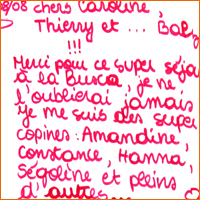 8/08 chers Caroline,
Thierry et ... Baby
!!!
Merci pour ce super séjo
à la Busca, je ne
l'oublierai jamais
je me suis des super
copines : Amandine,
Constance, Hanna,
Ségoline et pleins
d'autres...